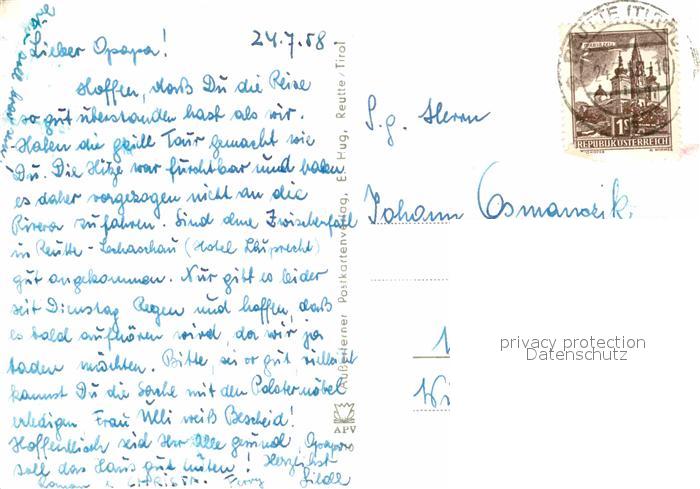 Lieber Opapa! 24.7.58.
Hoffen, daß Du die Reise
so gut überstanden hast als wir.
Haben die Tour gemacht wie
Du. Die Hitze war furchtbar und haben
es daher vorgezogen nicht an die
Riviera zu fahren. Sind ohne Zwischenfall
in Reutte - Lechaschau (Hotel Lauprecht)
gut angekommen. Nur gibt es leider
seit Dienstag Regen und hoffen, daß
es bald aufhören wird, da wir ja
baden möchten. Bitte, sei so gut, vielleicht
kannst Du die Sache mit den Polstermöbel
erledigen. Frau Ulli weiß Bescheid!
Hoffentlich seid Ihr Alle gesund, Opapa
soll das Haus gut hüten! Herzlichst
Roman Ferry
Außerferner Postkartenverlag, E. Hug, Reutte/Tirol
APV
S.g. Herrn
Johann
privacy protection
Datenschutz
MARIAZELL
1S
REPUBLIK ÖSTERREICH